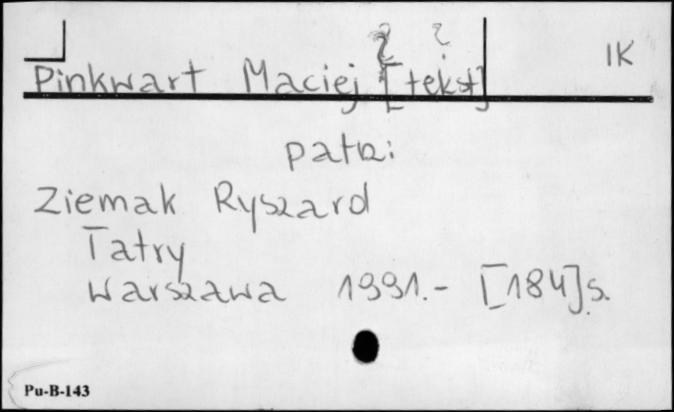 ? ?
IK
Pinkwart Maciej [tekst]
patrz:
Ziemak Ryszard
Tatry
Warszawa 1991.- [184]s.
Pu-B-143